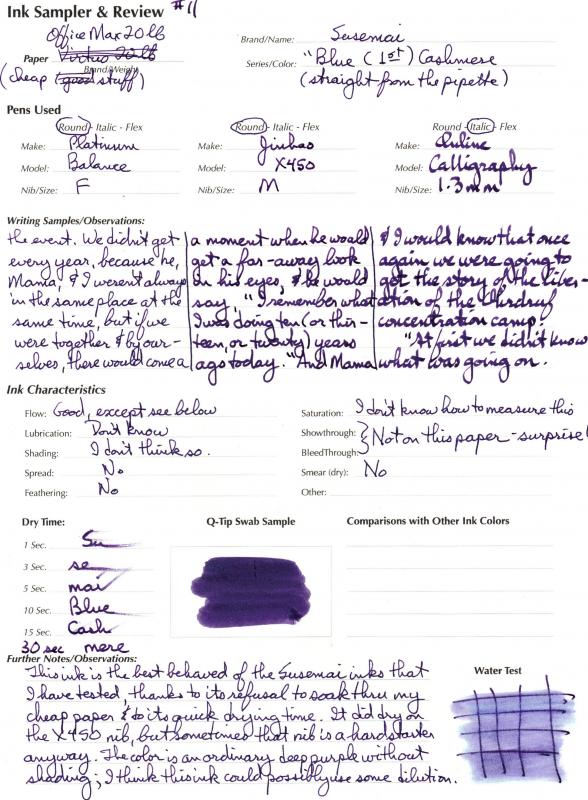 Ink Sampler & Review #11
OfficeMax 20 lb
Paper Virtuo 20 lb
Brand/Weight
(cheap good stuff)
Brand/Name: Susemai
Series/Color: "Blue (1st) Cashmere
(straight from the pipette)
Pens Used
Round - Italic - Flex
Make: Platinum
Model: Balance
Nib/Size: F
Round - Italic - Flex
Make: Jinhao
Model: X450
Nib/Size: M
Round - Italic - Flex
Make:
Model: Calligraphy
Nib/Size: 1.3mm
Writing Samples/Observations:
the event. We didn't get
every year, because he,
Mama, & I weren't always
in the same place at the
same time, but if we
were together & by our-
selves, there would come a
a moment when he would
get a far-away look
in his eyes, & he would
say, "I remember what
I was doing ten (or thir-
teen, or twenty) years
ago today." And Mama
& I would know that once
again we were going to
get the story of the liber-
ation of the Ohrdruf
concentration camp.
"At first we didn't know
what was going on.
Ink Characteristics
Flow: Good, except see below
Lubrication: Don't know
Shading: I don't think so.
Spread: No
Feathering: No
Saturation: I don't know how to measure this
Showthrough: } Not on this paper - surprise!
BleedThrough:
Smear (dry): No
Other:
Dry Time:
1 Sec. Su
3 Sec. se
5 Sec. mai
10 Sec. Blue
15 Sec. Cash
30 sec mere
Q-Tip Swab Sample
Comparisons with Other Ink Colors
Further Notes/Observations:
This ink is the best behaved of the Susemai inks that
I have tested, thanks to its refusal to soak thru my
cheap paper & to its quick drying time. It did dry on
the X450 nib, but sometimes that nib is a hard starter
anyway. The color is an ordinary deep purple without
shading; I think this ink could possibly use some dilution.
Water Test